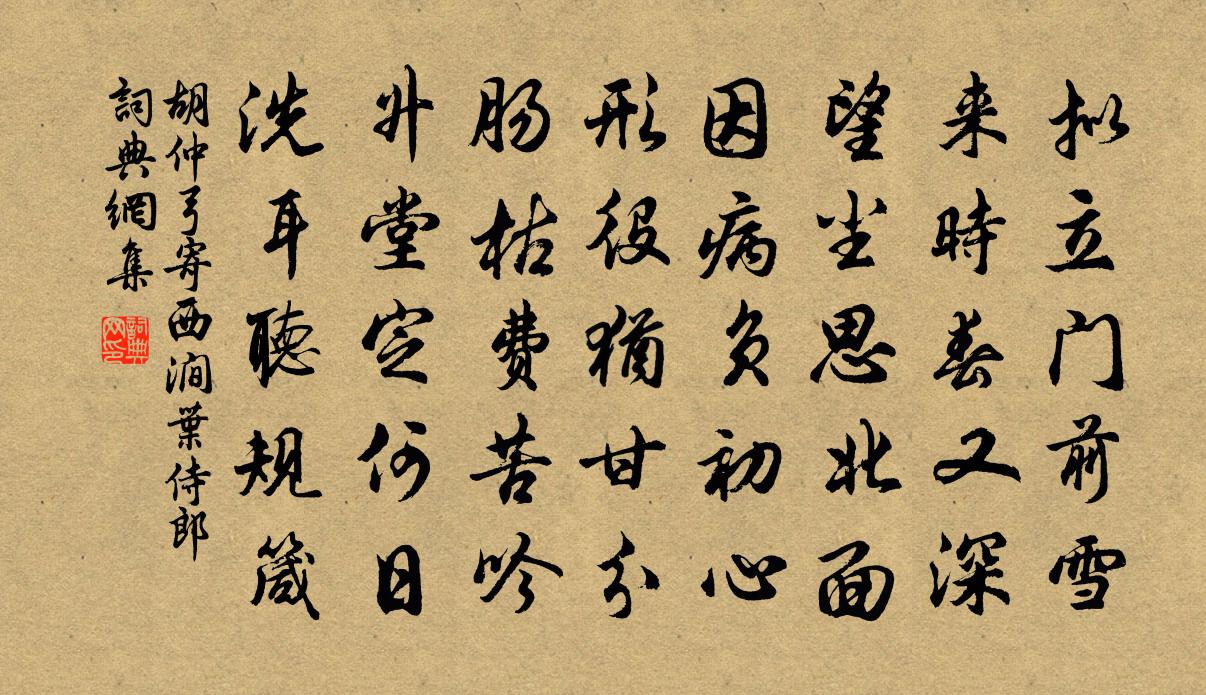 拟立门前雪
来时春又深
望尘思北面
因病负初心
形役犹甘分
肠枯费苦吟
升堂定何日
洗耳聴规箴
胡仲弓寄西涧葉侍郎
詞典網集
詞典网印